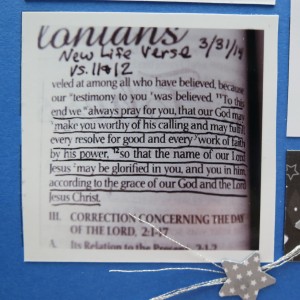 lonians
New Life Verse 3/31/19
vs. 11 & 12
veled at among all who have believed, because
our testimony to you was believed. 11To this
end we always pray for you, that our God may
make you worthy of his calling and may fulfill
every resolve for good and every work of faith
by his power, 12so that the name of our Lord
Jesus may be glorified in you, and you in him,
according to the grace of our God and the Lord
Jesus Christ.
III. CORRECTION CONCERNING THE DAY
OF THE LORD, 2:1-17
A. Its Relation to the Present 2:1-2